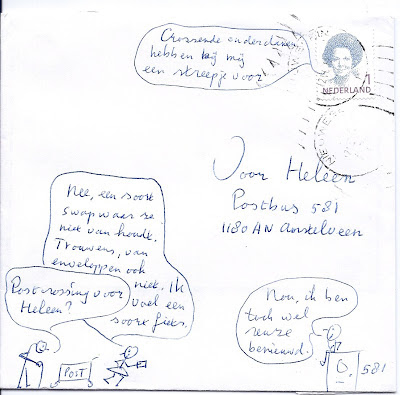 Crossende onderdanen
hebben bij mij
een streepje voor
1
NEDERLAND
Voor Heleen
Postbus 581
1180 AN Amstelveen
Nee, een soort
swap waar ze
niet van houdt.
Trouwens, van
enveloppen ook
niet. Ik
voel een
soort fiets.
Postcrossing voor
Heleen?
POST
Nou, ik ben
toch wel
reuze
benieuwd.
581